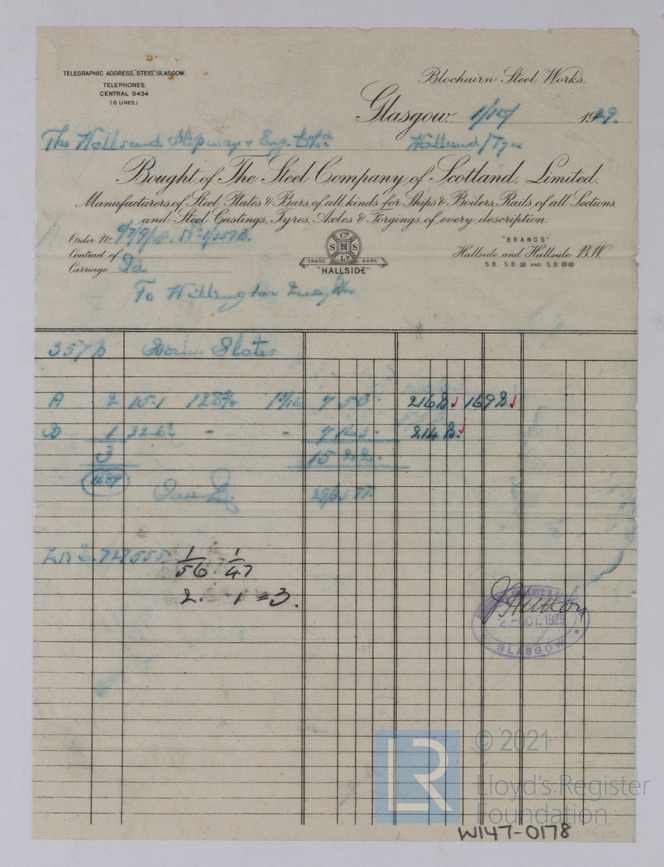 TELEGRAPHIC ADDRESS, "STEEL" GLASGOW.
TELEPHONES.
CENTRAL 9434
(6 LINES)
Blochairn Steel Works.
Glasgow 1/10/ 1929.
The Wallsend Slipway & Eng. Co Ltd Wallsend/Tyne
Bought of The Steel Company of Scotland, Limited,
Manufacturers of Steel Plates & Bars of all kinds for Ships & Boilers, Rails of all Sections
and Steel Castings, Tyres, Axles & Forgings of every description.
Order No.
Contract of
Carriage
TRADE MARK
"HALLSIDE"
"BRANDS"
Hallside and Hallside B.W.
S.B. S.B. AND S.B.
To Willington Quay
357 B Boiler Plates
A 2 15-1 216B 169B
B 1 - - 214B.
3 15
1/56 1/47
2. 1 = 3.
J Hutton
2-OCT.1929
GLASGOW
LR
© 2021
Lloyd's Register
Foundation
W147-0178